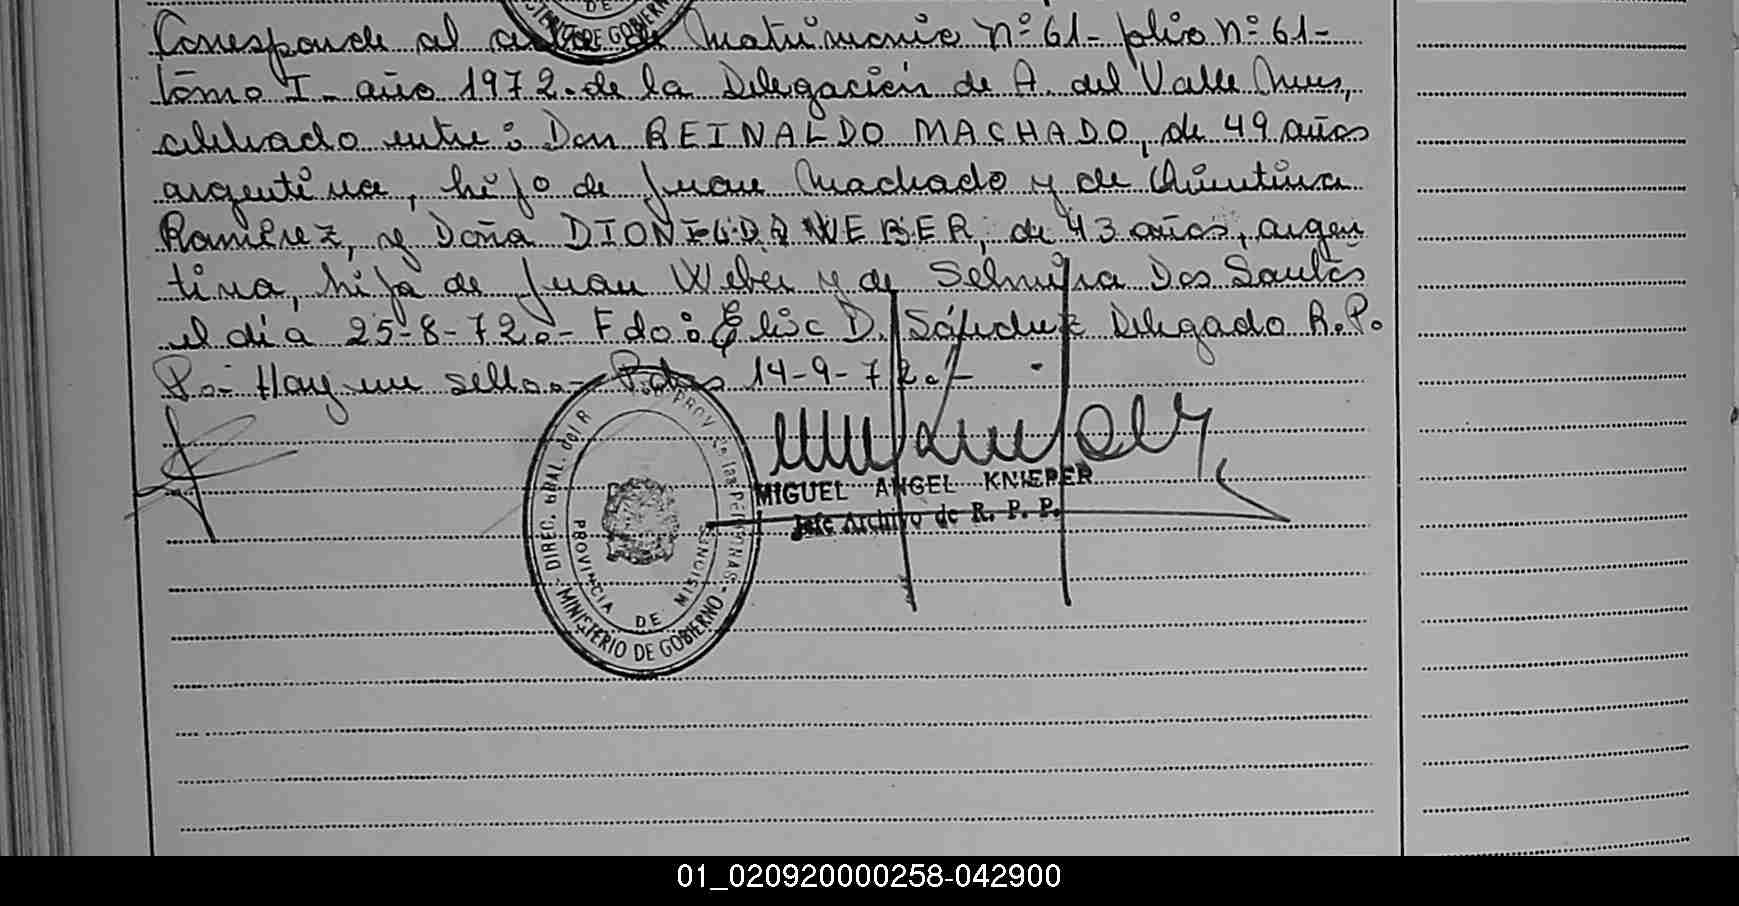 Corresponde al acta de Matrimonio nº 61- folio nº 61-
tomo I - año 1972.- de la Delegación de A. del Valle
celebrado entre: Don REINALDO MACHADO, de 49 años
argentino, hijo de Juan Machado y de
Ramirez, y Doña WEBER, de 43 años, argen
tina, hija de Juan Weber y de Selmira Dos Santos
el dia 25-8-72.- Fdo: D. Delegado R.P.
P.- Hay un sello.- Pdas 14-9-72.-
MIGUEL ANGEL KNIEPER
Jefe Archivo de R. P. P.
DIREC. GRAL. del R PROV de las PERSONAS
PROVINCIA DE MISIONES
- MINISTERIO DE GOBIERNO -
01_020920000258-042900